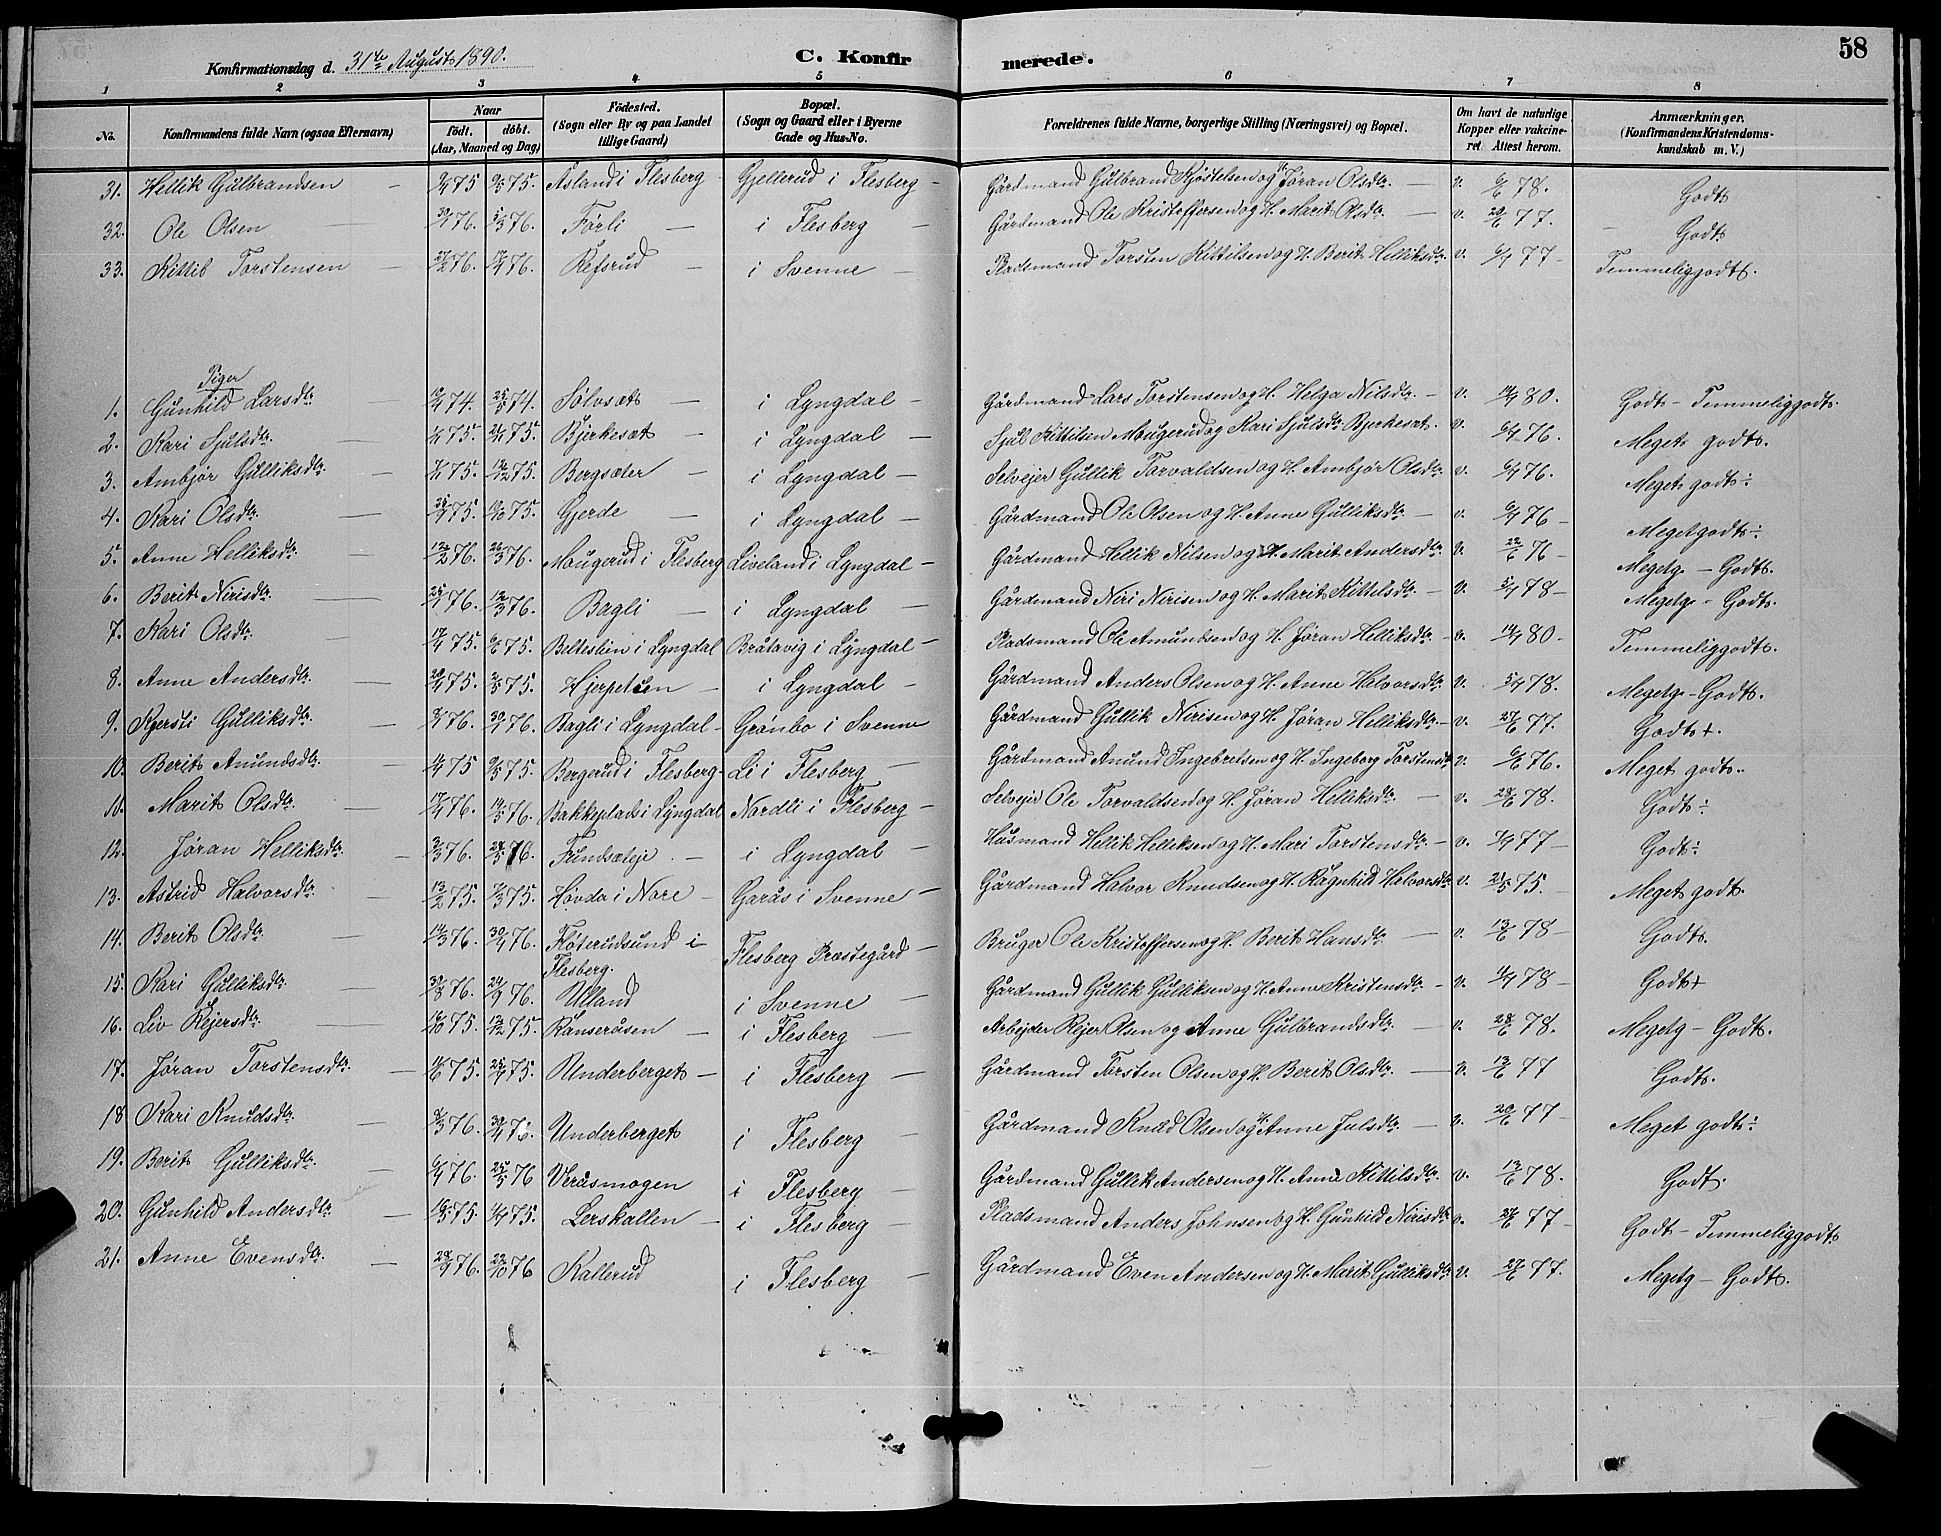 58
Konfirmationsdag d. 31te August 1890. C. Konfir merede.
1 2 3 4 5 6 7 8
No. Konfirmandens fulde Navn (ogsaa Efternavn) Naar født. døbt. (Aar, Maaned og Dag) Fødested. (Sogn eller By og paa Landet tillige Gaard) Bopæl. (Sogn og Gaard eller i Byerne Gade og Hus-No. Forældrenes fulde Navne, borgerlige Stilling (Næringsvei) og Bopæl. Om havt de naturlige Kopper eller vakcineret. Attest herom. Anmærkninger. (Konfirmandens Kristendomskundskab m. V.)
31. Hellik Gulbrandsen 75 75. Åsland i Flesberg Gjellerud i Flesberg Gårdmand Gulbrand Kjøstelsen og H. Jøran Olsdtr. v. 78. Godt
32. Ole Olsen 76. 76. Førli i Flesberg Gårdmand Ole Kristoffersen og H. Marit Olsdtr. v. 20/6 77. Godt
33. Kittil Torstensen 76. 76. Refsrud i Svenne Pladsmand Torsten Kittilsen og H. Berit Helliksdtr. v. 77 Temmeliggodt.
Piger
1. Gunhild Larsdtr. 74. 25/5 74. Sølvsæt i Lyngdal Gårdmand Lars Torstensen og H. Helga Nilsdtr. v. 80. Godt - Temmeliggodt.
2. Kari Sjulsdtr. 75. 75. Bjerkesæt i Lyngdal Sjul Kittilsen Mougerud og Kari Sjulsdtr. Bjerkesæt. v. 76. Meget godt.
3. Ambjør Gulliksdtr. 75. 12/12 75. Bergsæter i Lyngdal Selvejer Gullik Torvaldsen og H. Ambjør Olsdtr. v. 76. Meget godt÷
4. Kari Olsdtr. 75. 75. Gjerde i Lyngdal Gårdmand Ole Olsen og H. Anne Gulliksdtr. v. 76 Megetgodt÷
5. Anne Helliksdtr. 12/2 76. 26/3 76. Mougerud i Flesberg Liveland i Lyngdal Gårdmand Hellik Nilsen og H. Marit Andersdtr. v. 22/6 76 Megetg - Godt.
6. Berit Nirisdtr. 76. 12/3 76. Bagli i Lyngdal Gårdmand Niri Nirisen og H. Marit Kittelsdtr. v. 78 Megetg - Godt.
7. Kari Olsdtr. 75. 75. Beltesbin i Lyngdal Bråtavig i Lyngdal Pladsmand Ole Amundsen og H. Jøran Helliksdtr. v. 80 Temmeliggodt.
8. Anne Andersdtr. 75. 2/5 75. Hjerpetjen i Lyngdal Gårdmand Anders Olsen og H. Anne Halvorsdtr. v. 78. Megetg - Godt.
9. Kjersti Gulliksdtr. 76. 76. Bagli i Lyngdal Grønbo i Svenne Gårdmand Gullik Nirisen og H. Jøran Helliksdtr. v. 27/6 77. Godt+.
10. Berit Anundsdtr. 75 9/5 75. Bergerud i Flesberg Li i Flesberg Gårdmand Anund Ingebretsen og H. Ingeborg Torstensdtr. v. 76. Meget godt..
11. Marit Olsdtr. 76. 14/5 76. Bakkeplads i Lyngdal Nordli i Flesberg Selvejer Ole Torvaldsen og H. Jøran Helliksdtr. v. 28/6 78. Godt÷
12. Jøran Helliksdtr. 76. 24/5 76. Trundsæteje i Lyngdal Husmand Hellik Helliksen og H. Mari Torstensdtr. v. 77 Godt÷
13. Astrid Halvorsdtr. 13/2 75. 75. Høvda i Nore Garås i Svenne Gårdmand Halvor Knudsen og H. Ragnhild Halvorsdtr. v. 21/5 75. Meget godt.
14. Berit Olsdtr. 14/3 76. 30/4 76. Fløterudsund i Flesberg. Flesberg Præstegård Bruger Ole Kristoffersen og H. Berit Hansdtr. v. 13/6 78 Godt.
15. Kari Gulliksdtr. 76. 24/9 76. Ulland i Svenne Gårdmand Gullik Gulliksen og H. Anne Kristensdtr. v. 78 Godt+
16. Liv Rejersdtr. 75. 12/12 75. Rånseråsen i Flesberg Arbejder Rejer Olsen og Anne Gulbrandsdtr. v. 28/6 78. Megetg - Godt.
17. Jøran Torstensdtr. 75. 75. Underberget i Flesberg Gårdmand Torsten Olsen og H. Berit Olsdtr. v. 13/6 77 Godt.
18 Kari Knudsdtr. 76. 30/4 76. Underberget i Flesberg Gårdmand Knud Olsen og H. Anne Julsdtr. v. 20/6 77 Meget godt÷
19. Berit Gulliksdtr. 76. 25/5 76 Veråsmogen i Flesberg Gårdmand Gullik Andersen og H. Anne Kittilsdtr. v. 13/6 78. Godt.
20. Gunhild Andersdtr. 75. 75. Lerskallen i Flesberg Pladsmand Anders Johnsen og H. Gunhild Nirisdtr. v. 77 Godt - Temmeliggodt
21. Anne Evensdtr. 76. 22/10 76 Kallerud i Flesberg Gårdmand Even Andersen og H. Marit Gulliksdtr. v. 27/6 77. Megetg - Godt.